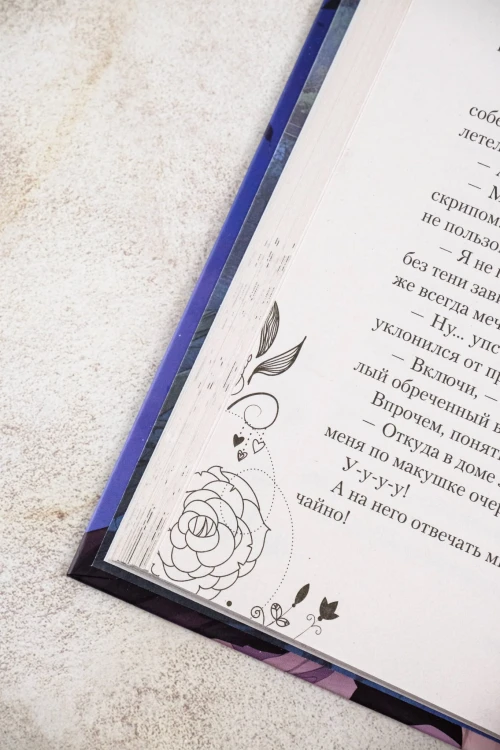 собе
летел
—
— М
скрипом
не пользо
— Я не
без тени зави
же всегда меч
— Ну... упс
уклонился от пр
— Включи, —
лый обреченный в
Впрочем, понят
— Откуда в доме
меня по макушке очер
У-у-у-у!
А на него отвечать м
чайно!